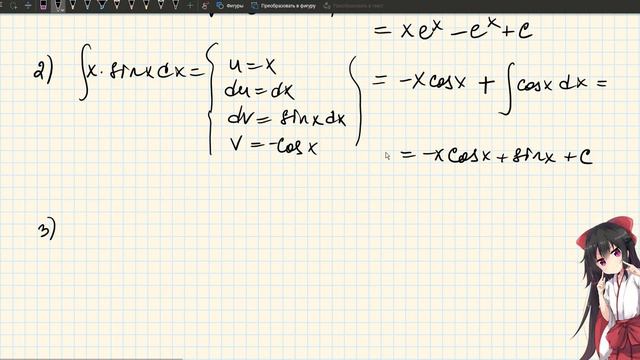 Фигуры Преобразовать в фигуру Преобразовать в текст
= xeˣ − eˣ + c
2) ∫x · sinx dx = { u = x
du = dx
dv = sinx dx
v = −cosx } = −x cosx + ∫cosx dx =
= −x cosx + sinx + c
3)